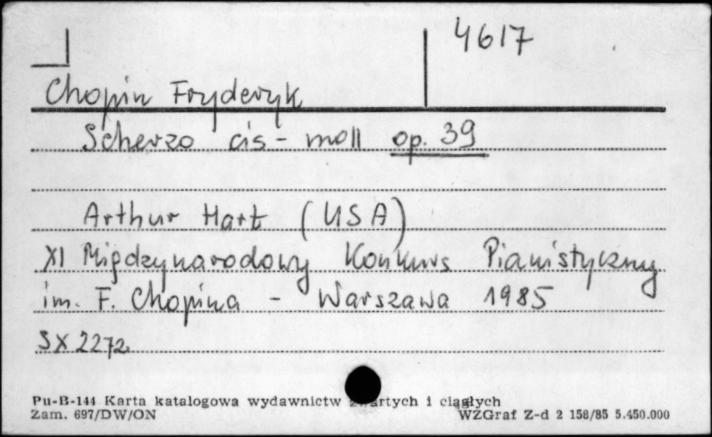 4617
Chopin Fryderyk
Scherzo cis-moll op. 39
Arthur Hart (USA)
XI Międzynarodowy Konkurs Pianistyczny
im. F. Chopina - Warszawa 1985
SX 2272
Pu-B-144 Karta katalogowa wydawnictw zwartych i ciągłych
Zam. 697/DW/ON WZGraf Z-d 2 158/85 5.450.000